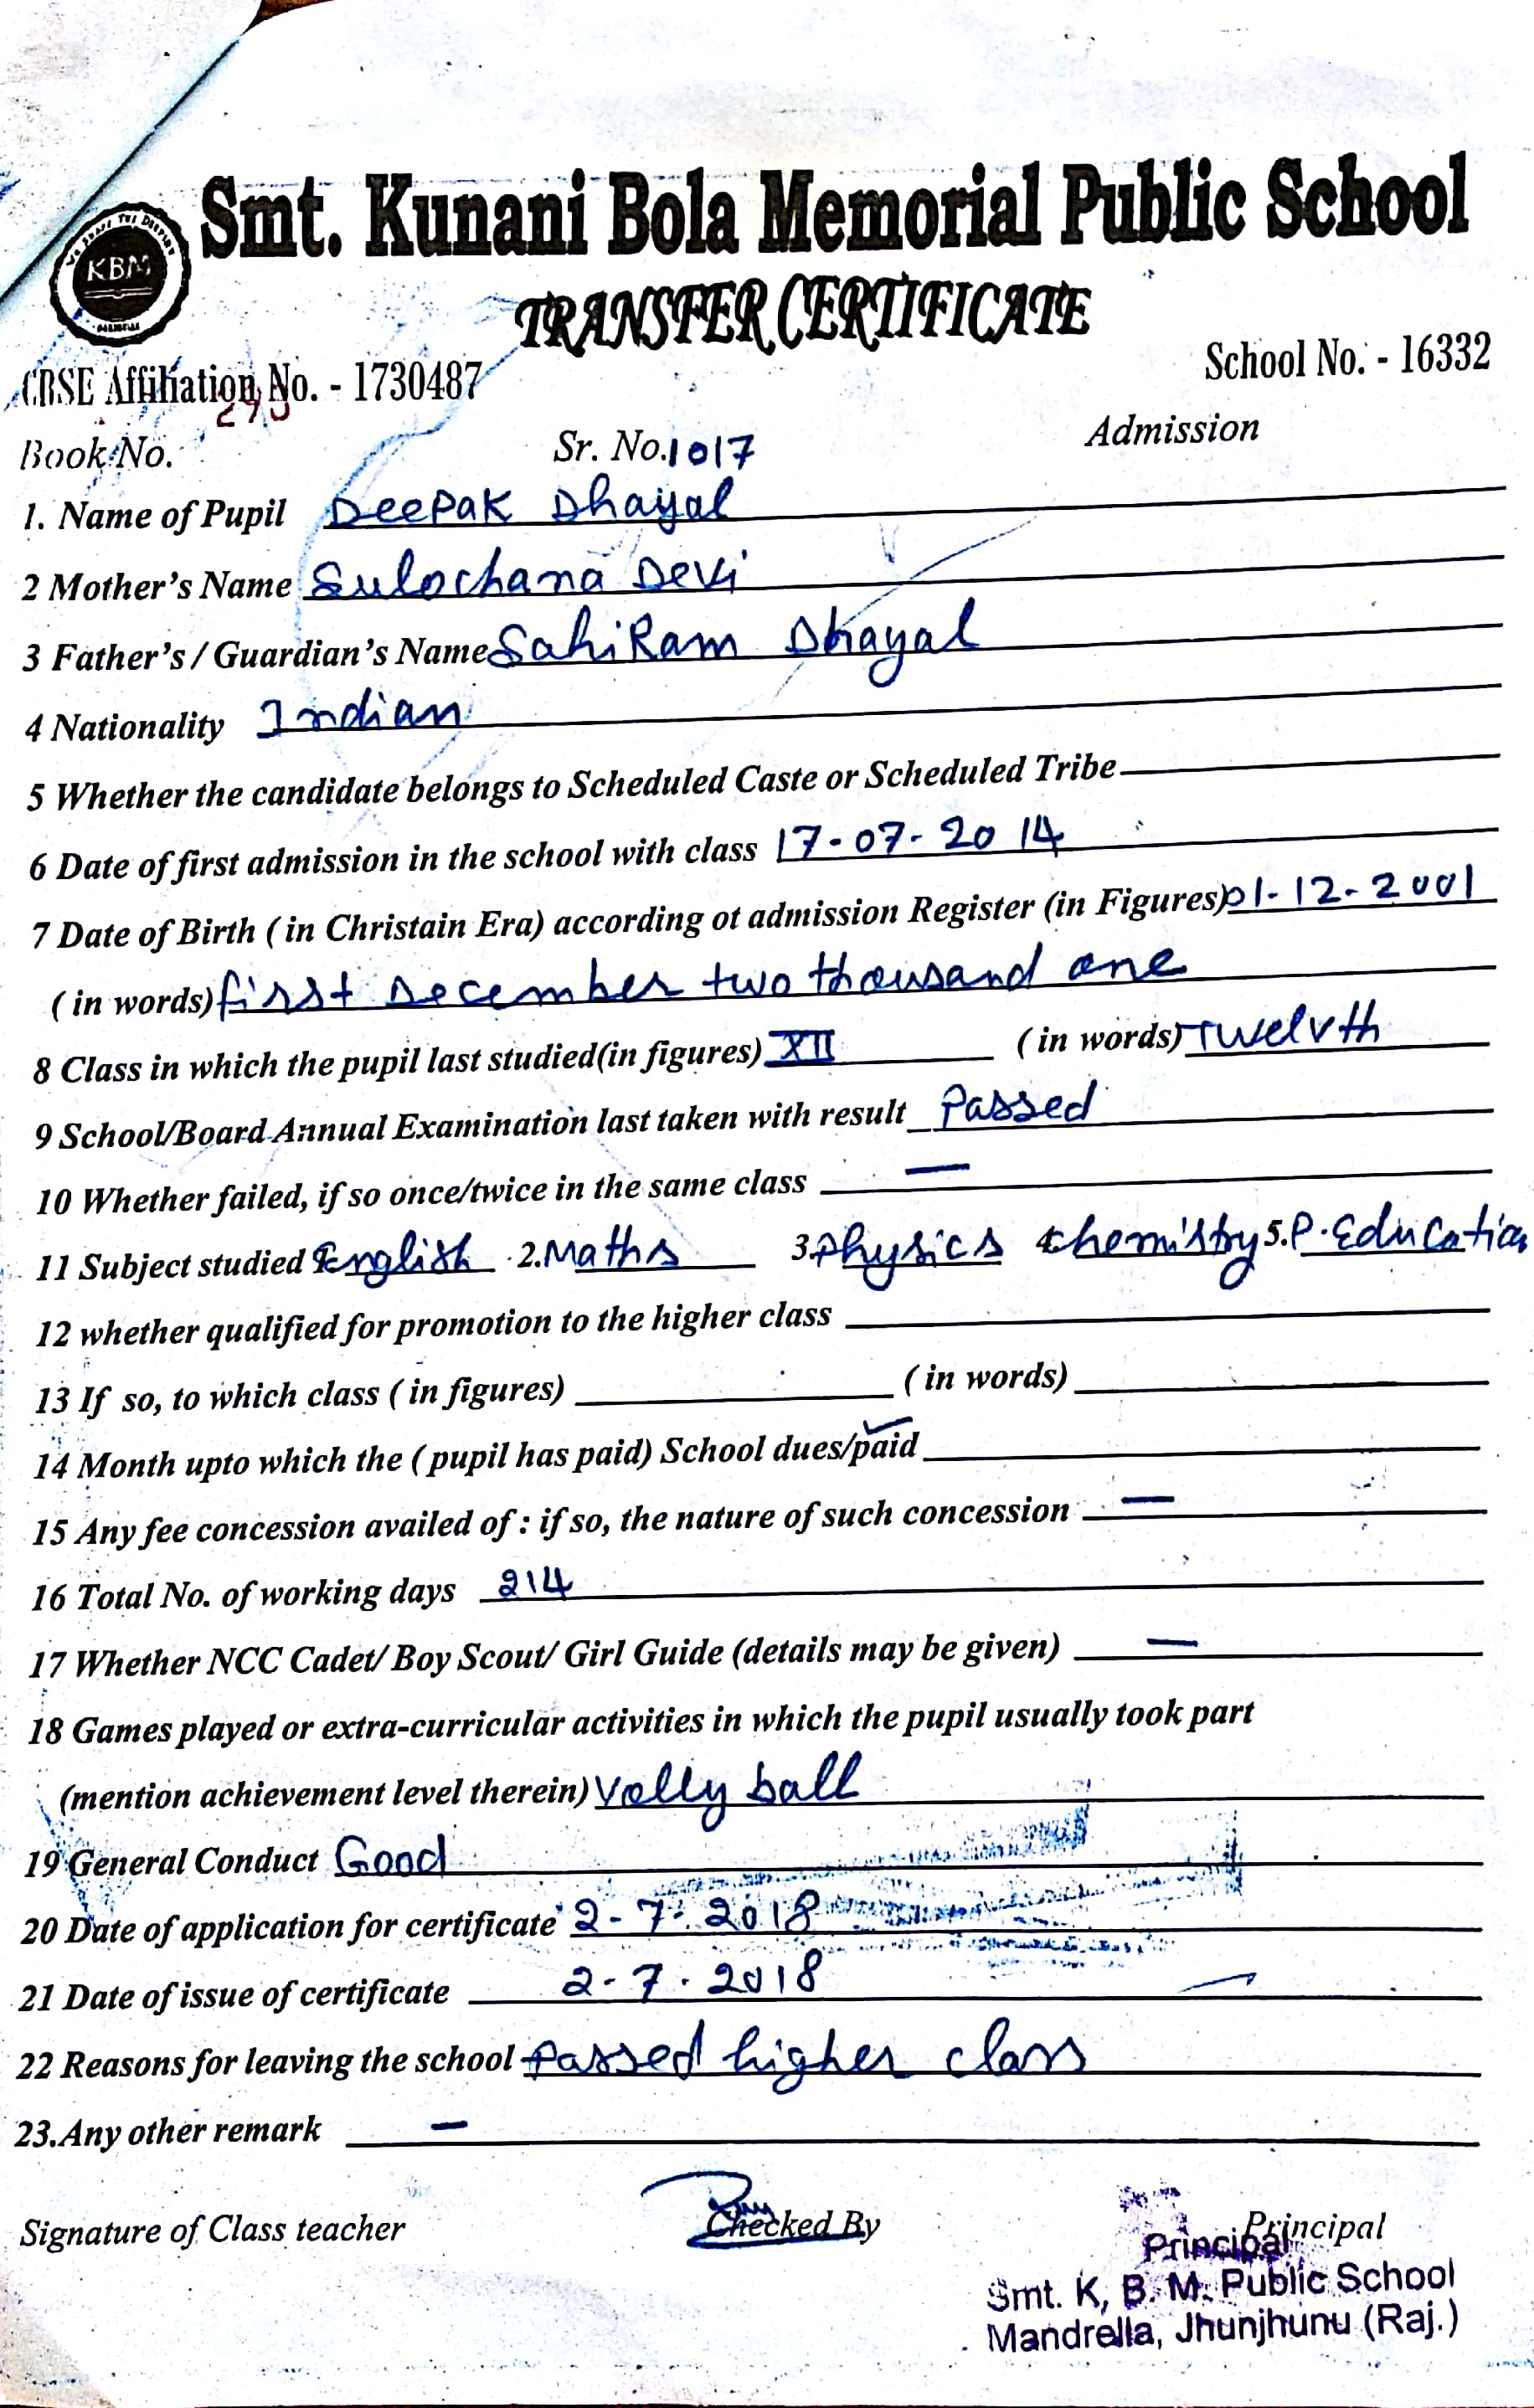 Smt. Kunani Bola Memorial Public School
KBM
TRANSFER CERTIFICATE
CBSE Affiliation No. - 1730487
School No. - 16332
Book No.
Sr. No. 1017
Admission
1. Name of Pupil Deepak Dhayal
2 Mother's Name Sulochana Devi
3 Father's / Guardian's Name SahiRam Dhayal
4 Nationality Indian
5 Whether the candidate belongs to Scheduled Caste or Scheduled Tribe
6 Date of first admission in the school with class 17-07-2014
7 Date of Birth ( in Christain Era) according ot admission Register (in Figures) 01-12-2001
( in words) first December two thousand one
8 Class in which the pupil last studied(in figures) XII ( in words) Twelvth
9 School/Board Annual Examination last taken with result Passed
10 Whether failed, if so once/twice in the same class —
11 Subject studied English 2. Maths 3. Physics 4. Chemistry 5. P. Education
12 whether qualified for promotion to the higher class
13 If so, to which class ( in figures) ( in words)
14 Month upto which the ( pupil has paid) School dues/paid
15 Any fee concession availed of : if so, the nature of such concession —
16 Total No. of working days 214
17 Whether NCC Cadet/ Boy Scout/ Girl Guide (details may be given) —
18 Games played or extra-curricular activities in which the pupil usually took part
(mention achievement level therein) Volly ball
19 General Conduct Good
20 Date of application for certificate 2-7-2018
21 Date of issue of certificate 2-7-2018
22 Reasons for leaving the school Passed higher class
23. Any other remark —
Signature of Class teacher
Checked By
Principal
Principal
Smt. K, B. M. Public School
Mandrella, Jhunjhunu (Raj.)